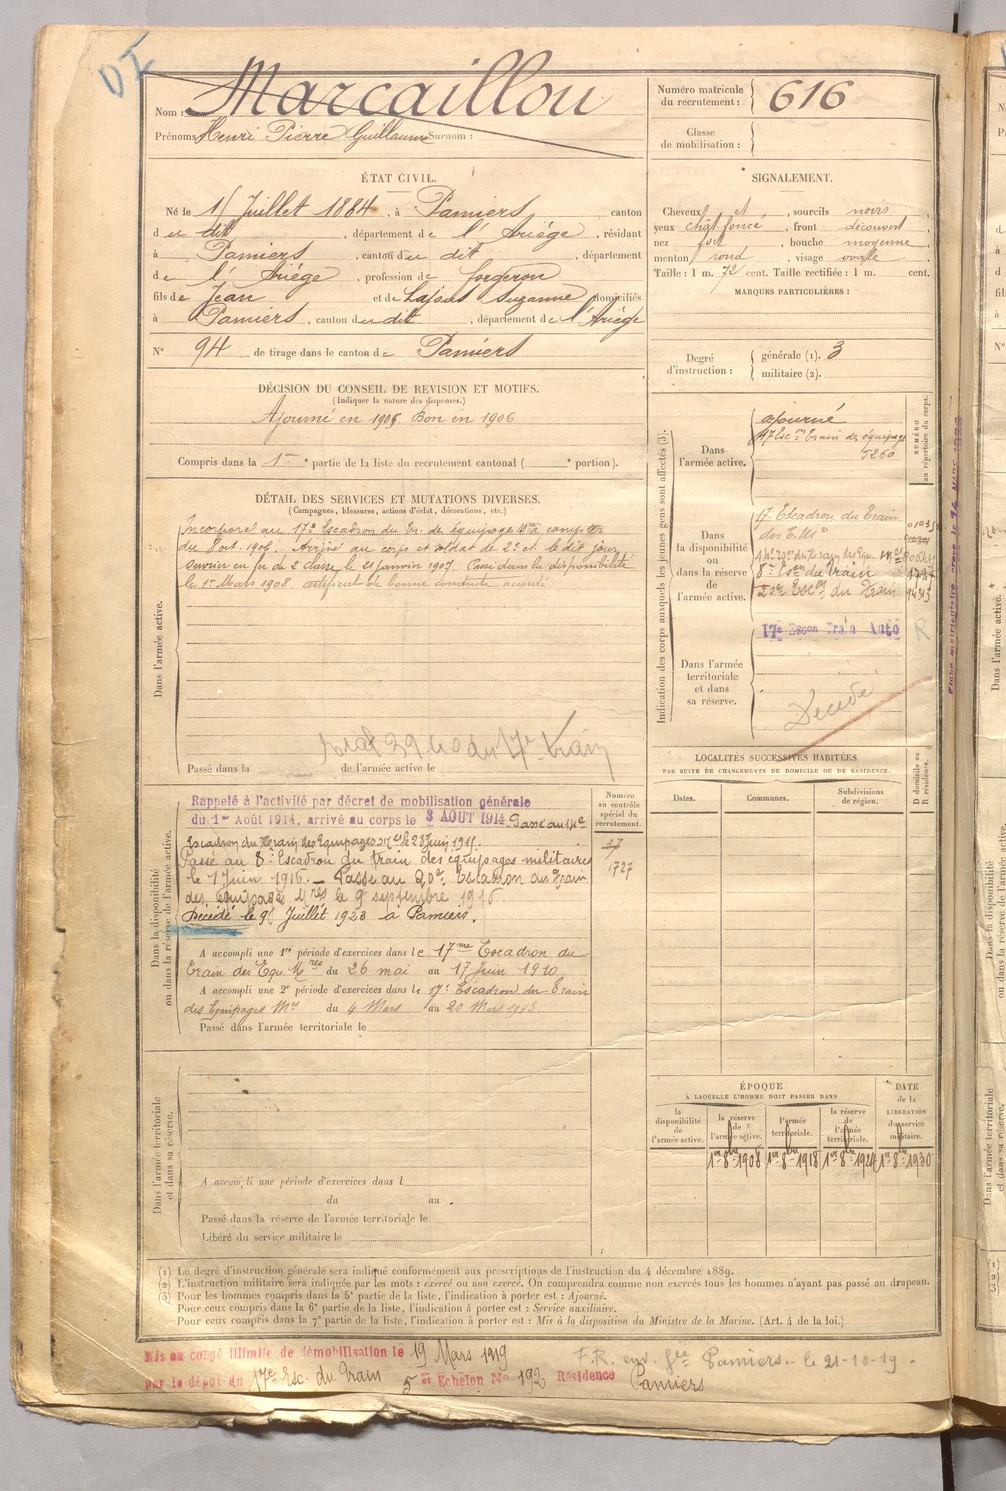 Nom : Marcaillou
Prénoms Henri Pierre Guillaume Surnom :
Numéro matricule du recrutement : 616
Classe de mobilisation :
ÉTAT CIVIL.
Né le 15 Juillet 1884, à Pamiers, canton
du dit, département de l'Ariège, résidant
à Pamiers, canton du dit, département
de l'Ariège, profession de forgeron
fils de Jean et de Lajous Suzanne domiciliés
à Pamiers, canton du dit, département de l'Ariège
N° 94 de tirage dans le canton de Pamiers
SIGNALEMENT.
Cheveux et, sourcils noirs
yeux chât foncé, front découvert
nez fort, bouche moyenne
menton rond, visage ovale
Taille : 1 m. 72 cent. Taille rectifiée : 1 m. cent.
MARQUES PARTICULIÈRES :
Degré d'instruction : générale (1). 3
militaire (2).
DÉCISION DU CONSEIL DE REVISION ET MOTIFS.
(Indiquer la nature des dispenses.)
Ajourné en 1905 Bon en 1906
Compris dans la 1re partie de la liste du recrutement cantonal ( ° portion).
DÉTAIL DES SERVICES ET MUTATIONS DIVERSES.
(Campagnes, blessures, actions d'éclat, décorations, etc.)
Dans l'armée active.
Incorporé au 17e Escadron du tr. des équipages Mres à compter
du 8 oct. 1906. Arrivé au corps et soldat de 2e cl. le dit jour,
ouvrier en fer de 2e classe le 21 janvier 1907. Passé dans la disponibilité
le 1er Mars 1908 certificat de bonne conduite accordé.
Passé dans la de l'armée active le
Indication des corps auxquels les jeunes gens sont affectés (3).
NUMÉRO au répertoire du corps.
Dans l'armée active.
ajourné
17 Escon Train des équipages
5260
Dans la disponibilité ou dans la réserve de l'armée active.
17e Escadron du Train
des E. Mres
8e Escon du Train 1727
20e Escon du Train
Dans l'armée territoriale et dans sa réserve.
17e Escon Train Auto R
Décédé
LOCALITÉS SUCCESSIVES HABITÉES
PAR SUITE DE CHANGEMENTS DE DOMICILE OU DE RÉSIDENCE.
Dates. Communes. Subdivisions de région. D domicile ou R résidence.
Dans la disponibilité ou dans la réserve de l'armée active.
Numéro au contrôle spécial du recrutement.
Rappelé à l'activité par décret de mobilisation générale
du 1er Août 1914, arrivé au corps le 3 AOUT 1914 Passé au
Escadron du Train des Equipages Mres le 28 Juin 1915.
Passé au 8e Escadron du train des equipages militaires
le 1 Juin 1916 – Passé au 20e Escadron du Train
des équipages Mres le 9 septembre 1916.
Décédé le 9 Juillet 1923 à Pamiers.
1727
A accompli une 1re période d'exercices dans le 17me Escadron du
Train des Equ. Mres du 26 mai au 17 Juin 1910
A accompli une 2e période d'exercices dans le 17e Escadron du Train
des Equipages Mres du 4 Mars au 20 Mars 1913
Passé dans l'armée territoriale le
ÉPOQUE
À LAQUELLE L'HOMME DOIT PASSER DANS
DATE de la LIBÉRATION du service militaire.
la disponibilité de l'armée active. la réserve de l'armée active. l'armée territoriale. la réserve de l'armée territoriale.
1er 8bre 1908 1er 8bre 1918 1er 8bre 1924 1er 8bre 1930
Dans l'armée territoriale et dans sa réserve.
A accompli une période d'exercices dans l
du au .
Passé dans la réserve de l'armée territoriale le
Libéré du service militaire le
(1) Le degré d'instruction générale sera indiqué conformément aux prescriptions de l'instruction du 4 décembre 1889.
(2) L'instruction militaire sera indiquée par les mots : exercé ou non exercé. On comprendra comme non exercés tous les hommes n'ayant pas passé au drapeau.
(3) Pour les hommes compris dans la 5e partie de la liste, l'indication à porter est : Ajourné.
Pour ceux compris dans la 6e partie de la liste, l'indication à porter est : Service auxiliaire.
Pour ceux compris dans la 7e partie de la liste, l'indication à porter est : Mis à la disposition du Ministre de la Marine. (Art. 4 de la loi.)
Mis en congé illimité de démobilisation le 19 Mars 1919
par le dépôt du 17e Esc. du Train 5 er Echelon No 192 Résidence Pamiers
F.R. env. Gie Pamiers - le 21-10-19.